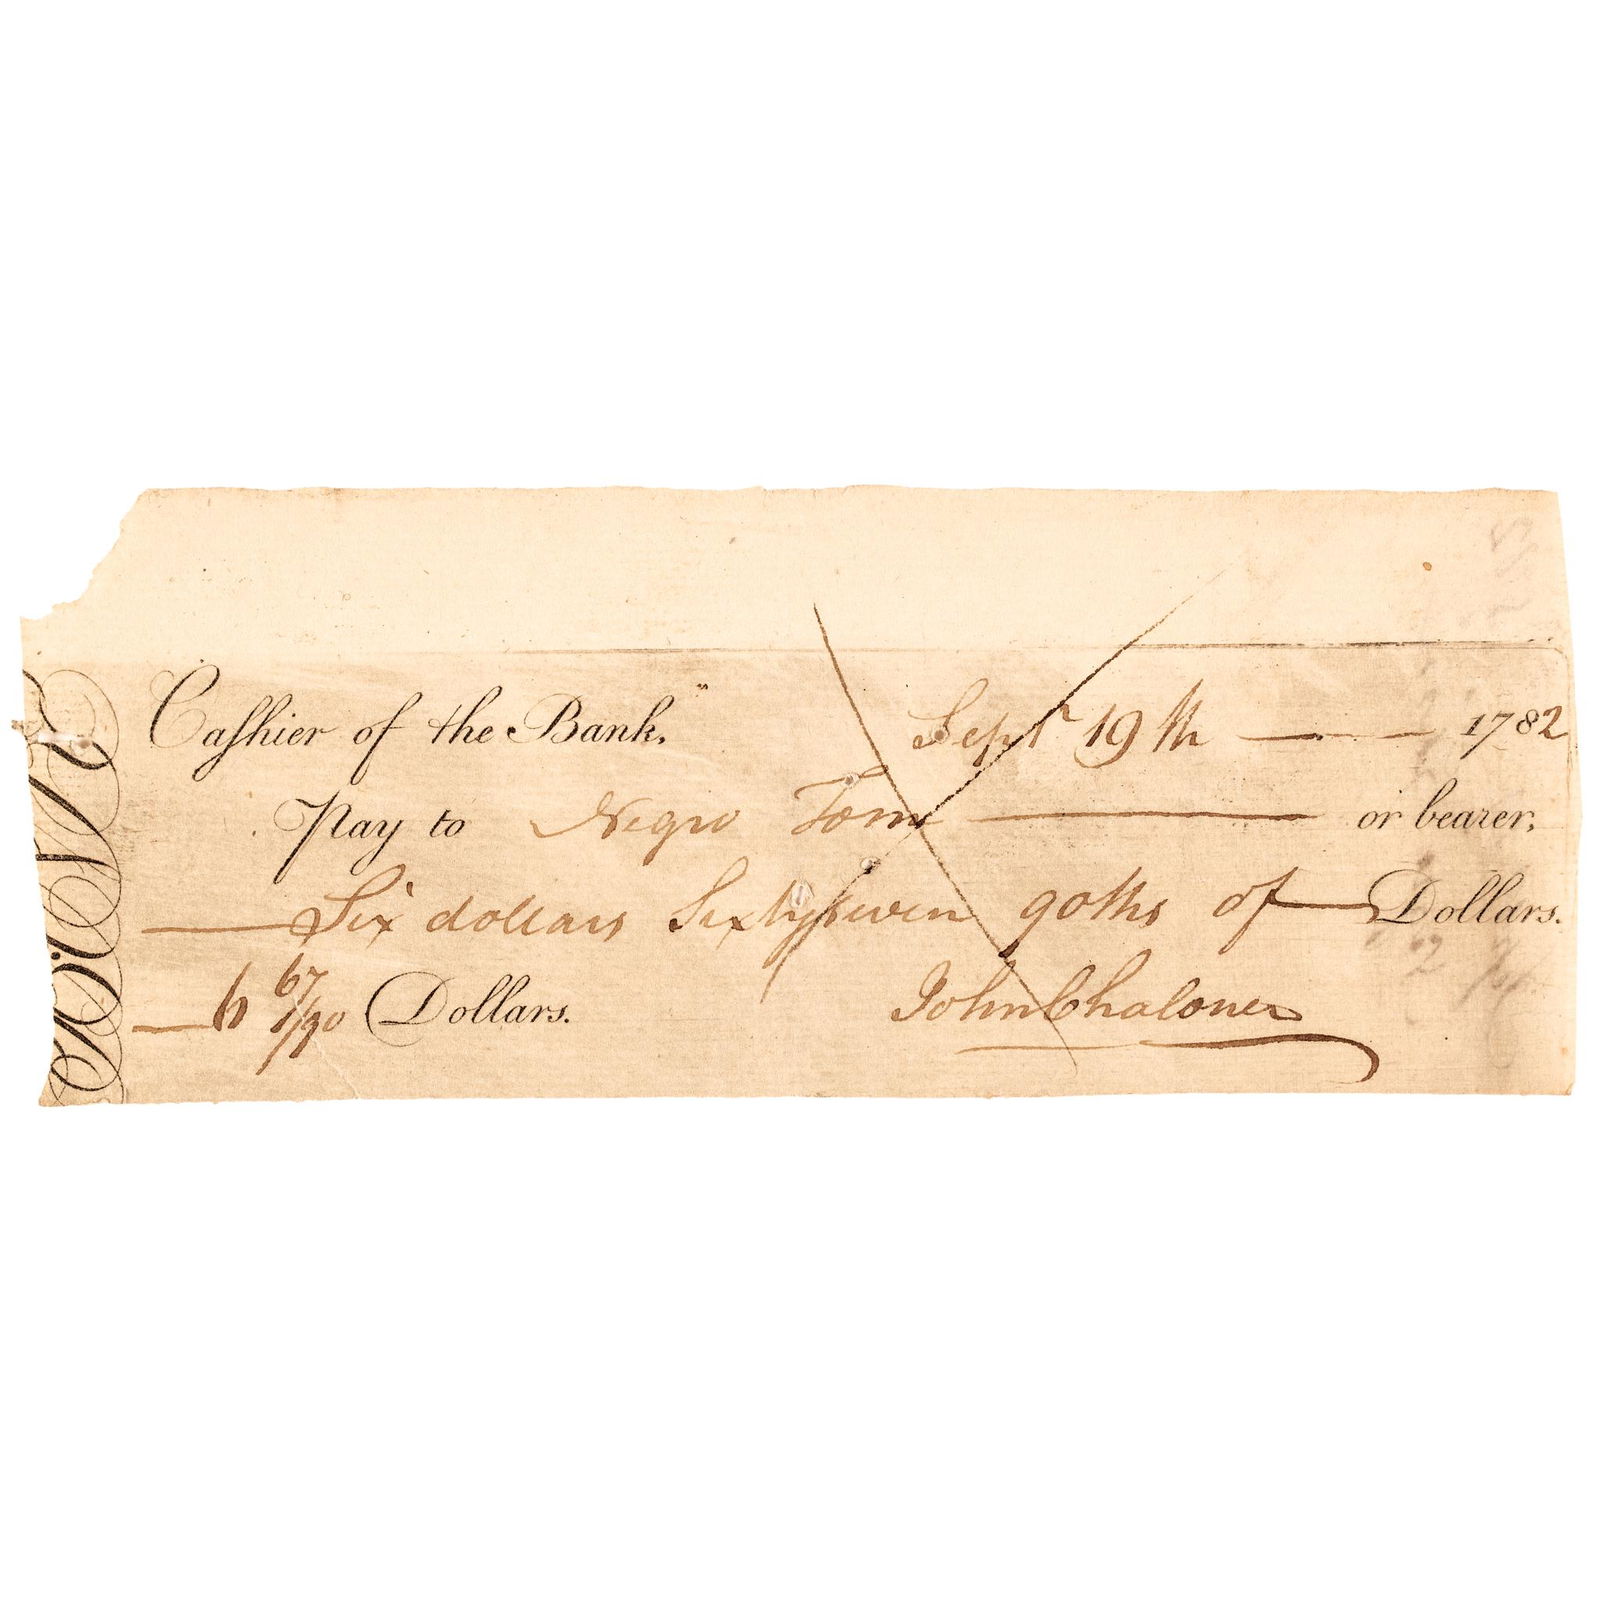 Cashier of the Bank. Sept 19th 1782
Pay to Negro Tom or bearer,
Six dollars Sixty seven 90ths of Dollars.
6 67/90 Dollars. John Chaloner